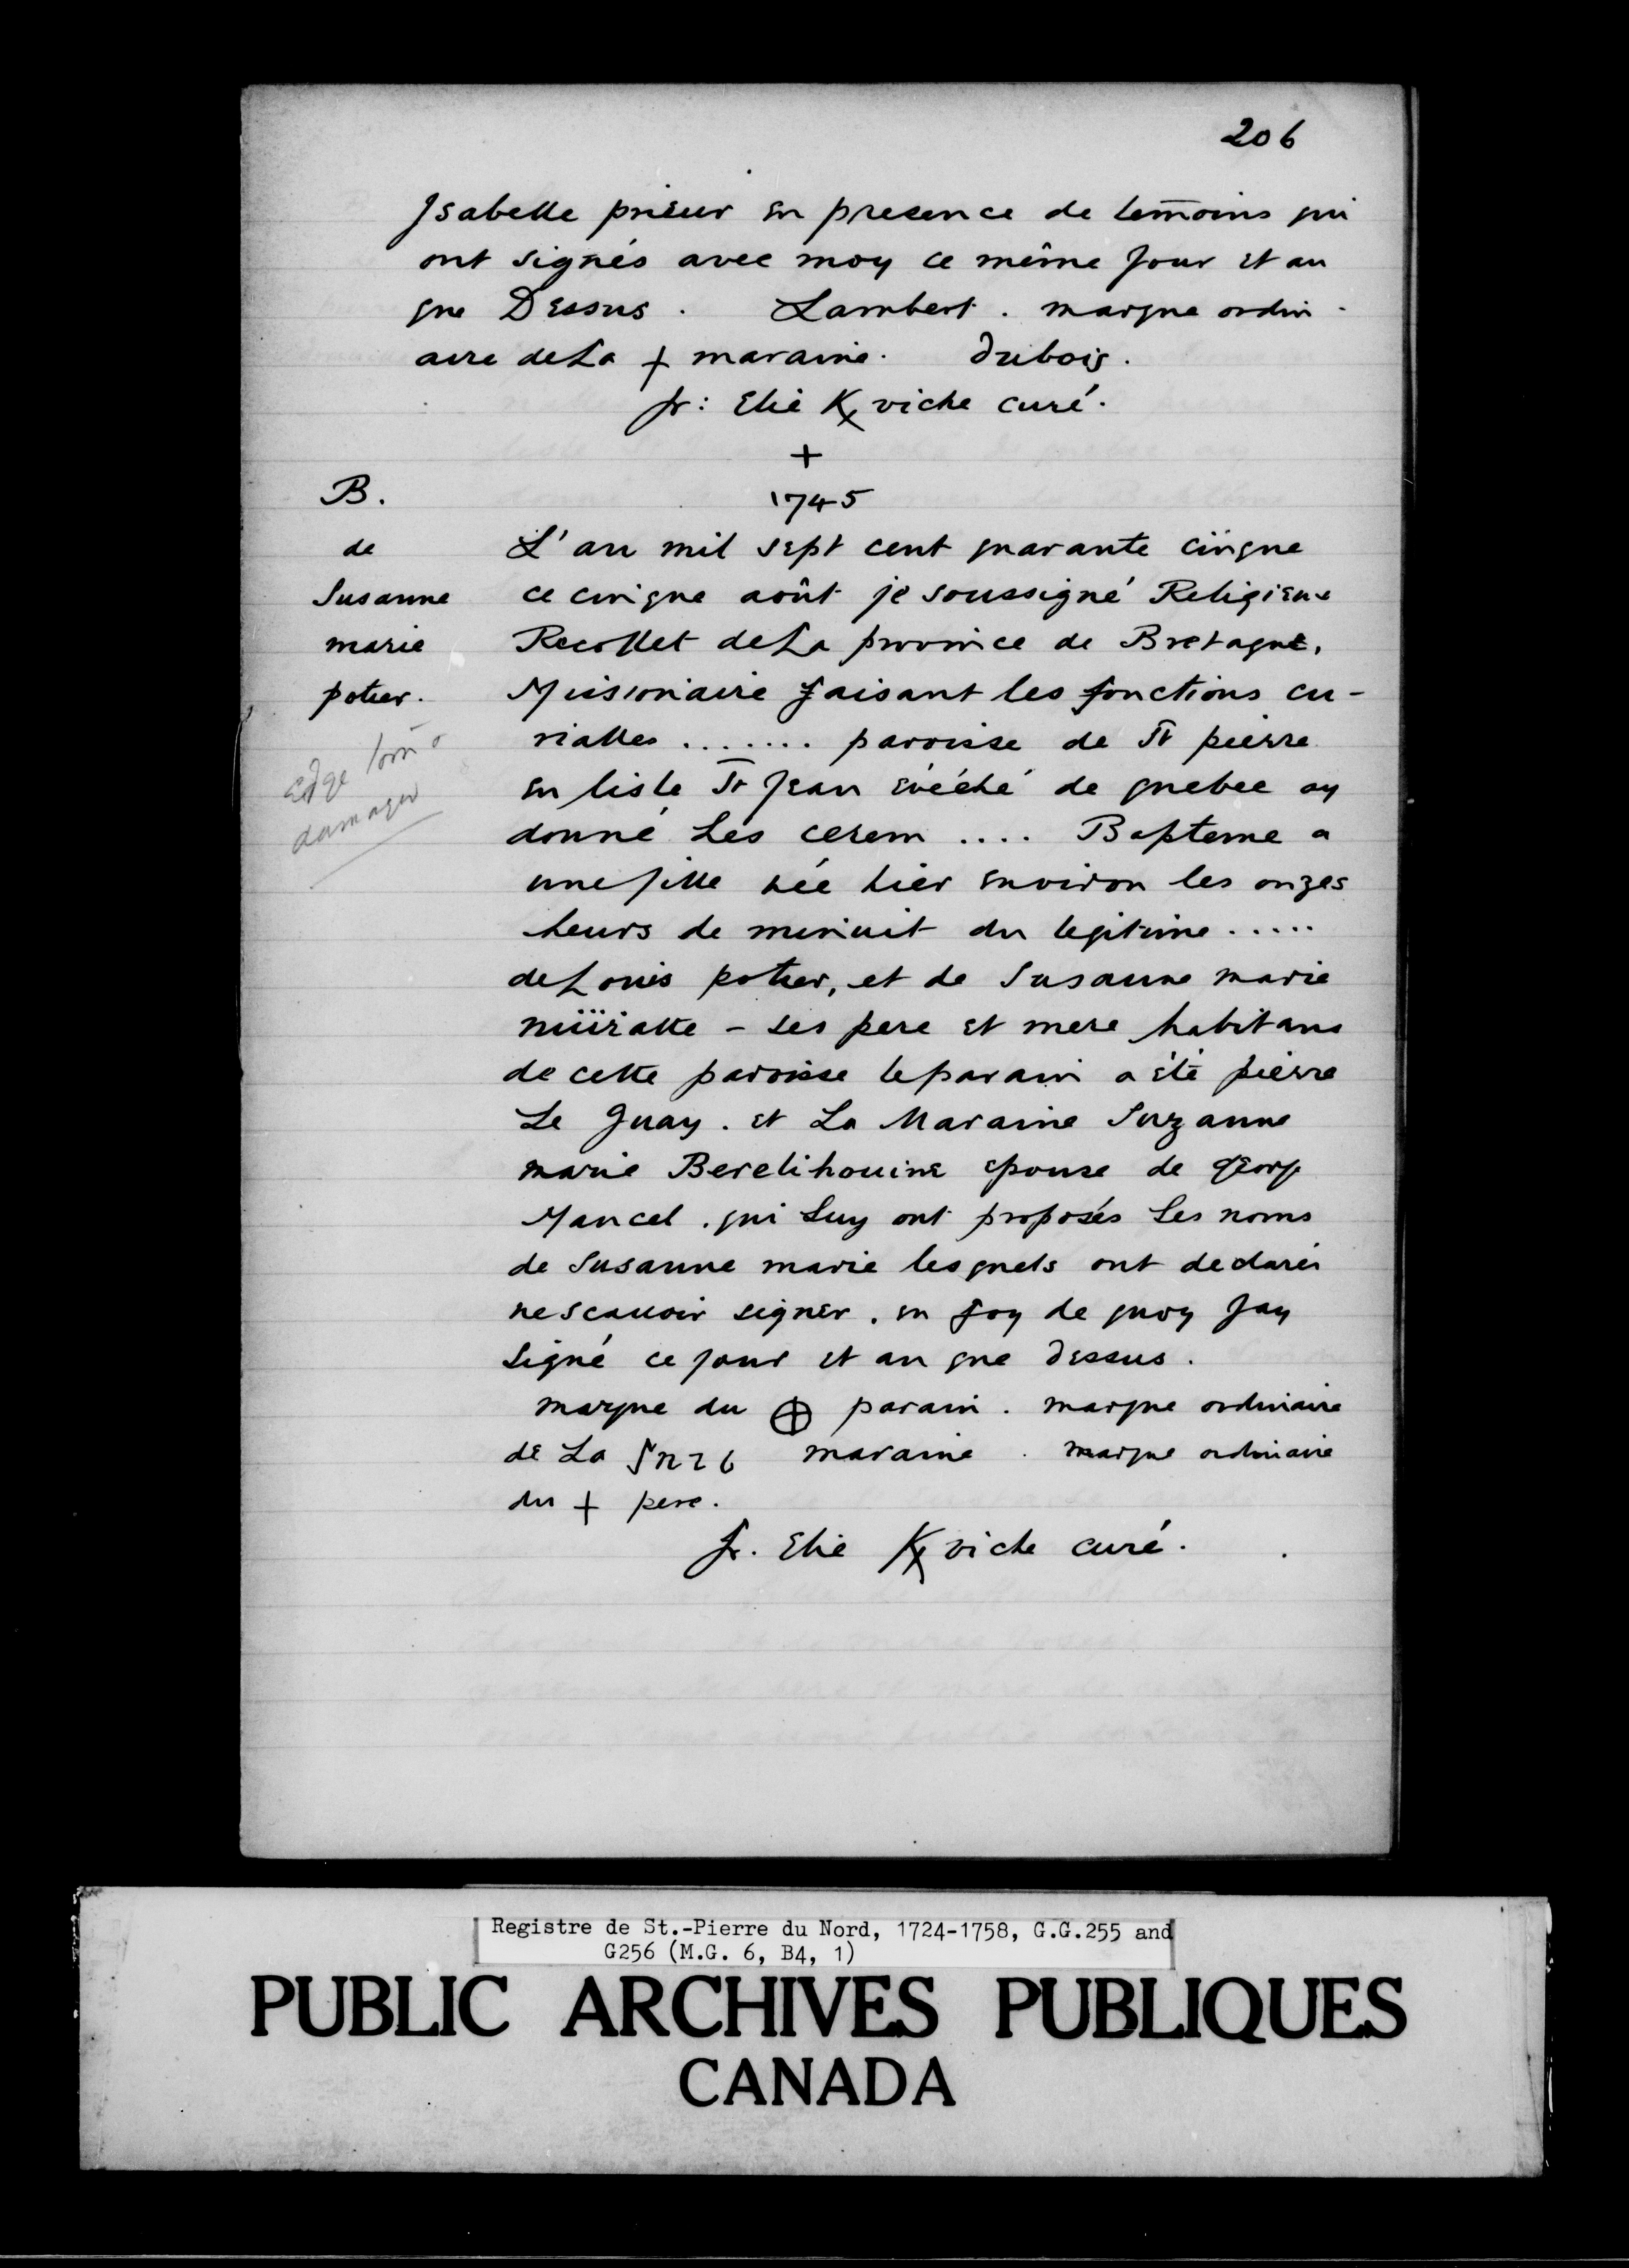 206
Jsabelle prieur en presence de temoins qui
ont signés avec moy ce même jour et an
que Dessus. Lambert. marque ordin-
aire deLa + maraine. Dubois.
fr: Elie K viche curé.
+
1745
B.
de
Susanne
marie
potier.
Edge torn &
damaged
L'an mil sept cent quarante cinque
ce cinque août je soussigné Religieux
Recollet deLa province de Bretagne,
Missionaire faisant les fonctions cu-
rialles ....... paroisse de St pierre
en lisle St Jean évéché de quebec ay
donné Les cerem .... Bapteme a
une fille née hier environ les onzes
heurs de minuit du legitime .....
deLouis potier, et de Susanne marie
- ses pere et mere habitans
de cette paroisse leparain a été pierre
Le Guay. et La Maraine Suzanne
marie Berelihouine epouse de georg
Mancel. qui Luy ont proposés Les noms
de Susanne marie lesquels ont declarés
nescauoir signer. en foy de quoy Jay
signé ce jour et an que dessus.
marque du ⊕ parain. marque ordinaire
de La maraine. marque ordinaire
du + pere.
fr. Elie K viche curé.
Registre de St.-Pierre du Nord, 1724-1758, G.G.255 and
G256 (M.G. 6, B4, 1)
PUBLIC ARCHIVES PUBLIQUES
CANADA